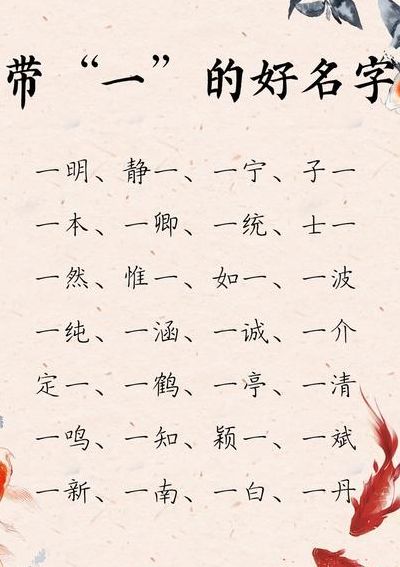 带“一”的好名字
一明、静一、一宁、子一
一本、一卿、一统、士一
一然、惟一、如一、一波
一纯、一涵、一诚、一介
定一、一鹤、一亭、一清
一鸣、一知、颖一、一斌
一新、一南、一白、一丹